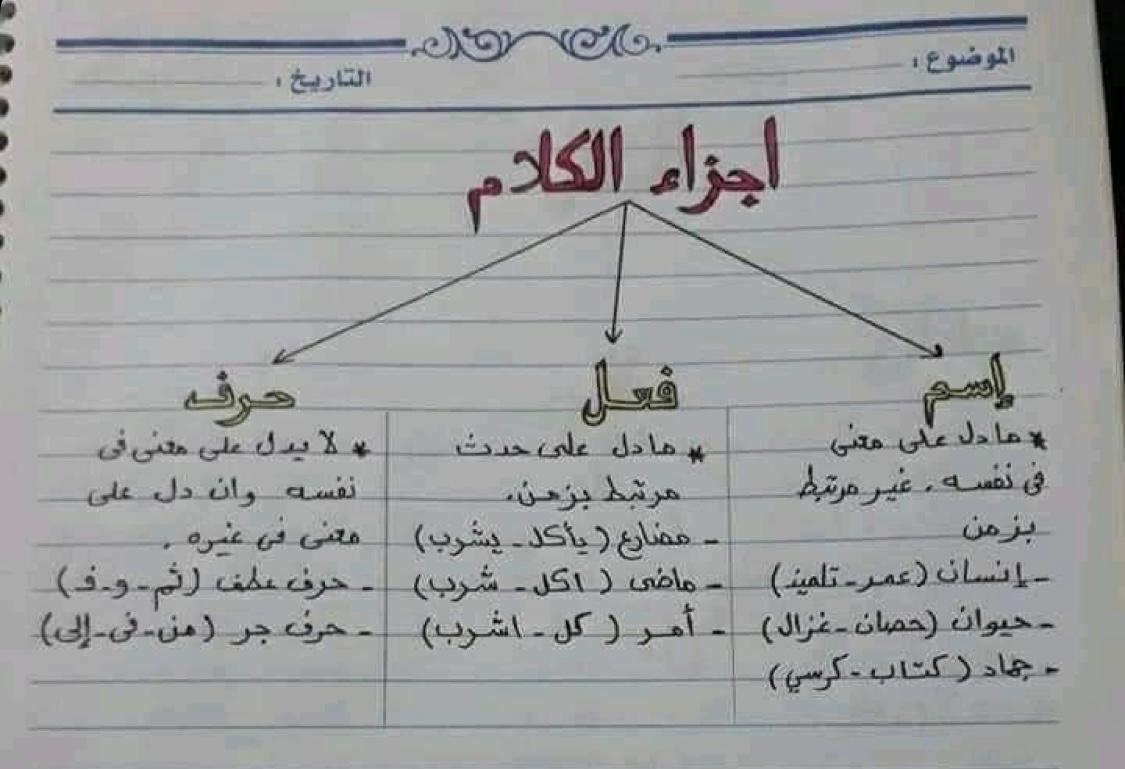 الموضوع :
التاريخ :
اجزاء الكلام
إسم
* ما دل على معنى
فى نفسه . غير مرتبط
بزمن
- إنسان (عمر - تلميذ)
- حيوان (حصان - غزال)
- جماد (كتاب - كرسي)
فعل
* ما دل على حدث
مرتبط بزمن .
- مضارع (يأكل - يشرب)
- ماضى (اكل - شرب)
- أمر (كل - اشرب)
حرف
* لا يدل على معنى فى
نفسه وان دل على
معنى فى غيره .
- حرف عطف (ثم - و - ف)
- حرف جر (من - فى - إلى)